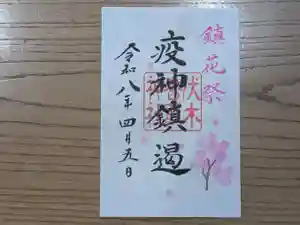 鎮花祭
疫神鎮遏
伏木
令和八年四月五日